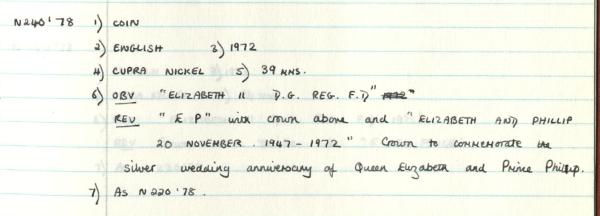 N240'78 1) COIN
2) ENGLISH 3) 1972
4) CUPRA NICKEL 5) 39 MNS.
6) OBV "ELIZABETH II D.G. REG. F.D"
REV "E P" with crown above and "ELIZABETH AND PHILLIP
20 NOVEMBER . 1947 - 1972" Crown to commemorate the
silver wedding anniversary of Queen Elizabeth and Prince Phillip.
7) AS N220'78.